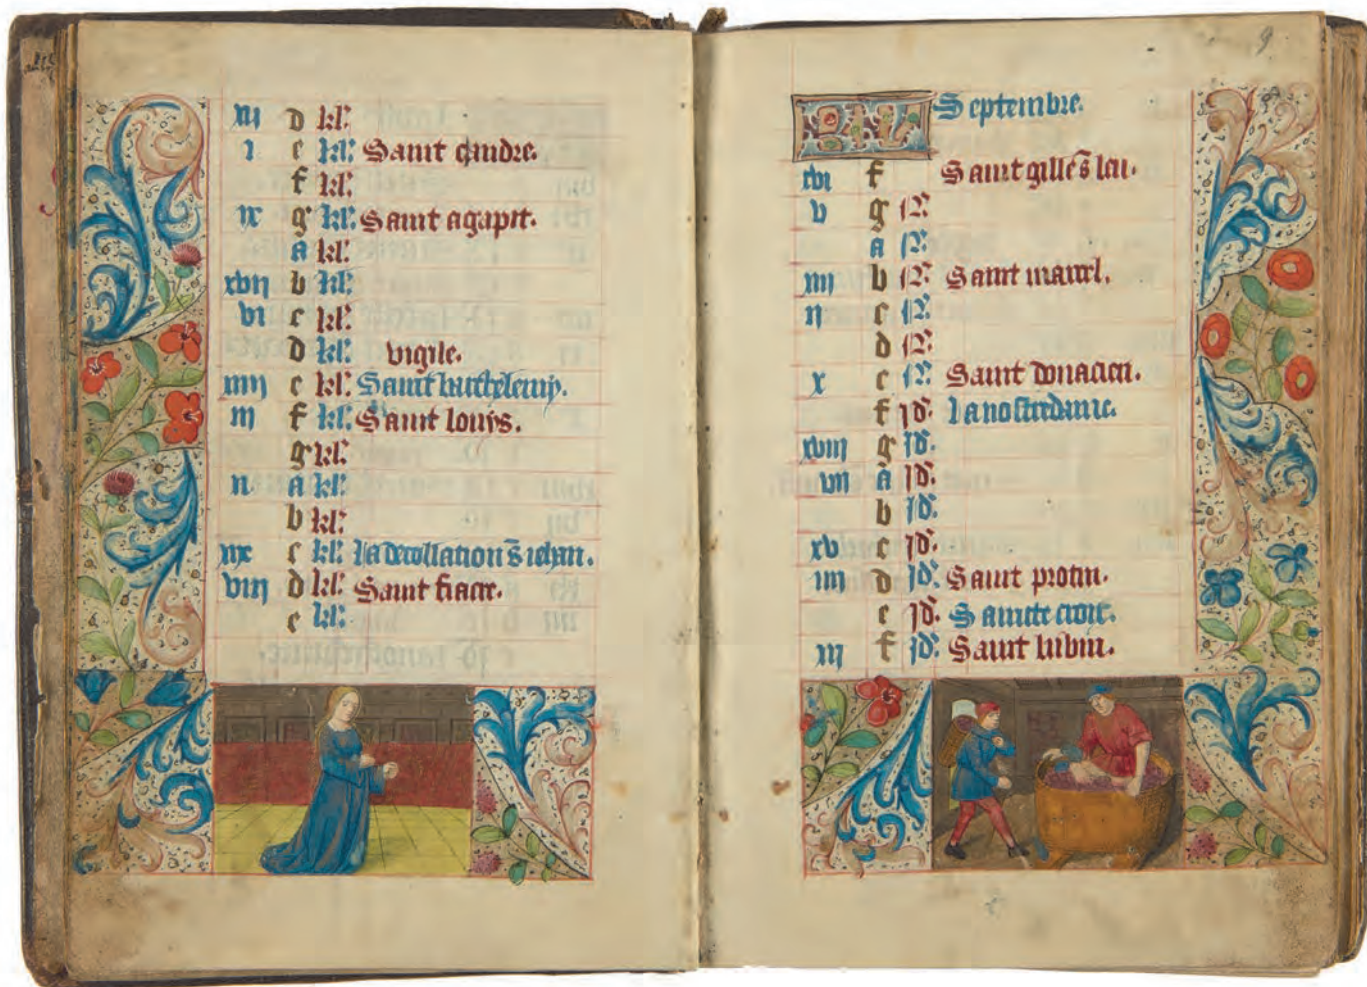 d kl'.
i c kl'. Saint
f kl'.
ix g kl'. Saint agapit.
a kl'.
xvii b kl'.
vi c kl'.
d kl'. vigile.
c kl'. Saint
iii f kl'. Saint louys.
g kl'.
ii a kl'.
b kl'.
c kl'. la decollation s iehan.
viii d kl'. Saint fiacre.
e kl'.
9
Septembre.
xvi f Saint gilles s leu.
v g N'.
a N'.
b N'. Saint marcel.
ii c N'.
d N'.
x e N'. Saint donacien.
f id'. la nostredame.
xviii g id'.
vii a id'.
b id'.
xv c id'.
iiii d id'. Saint protin.
e id'. Saincte croix.
f id'. Saint lubin.